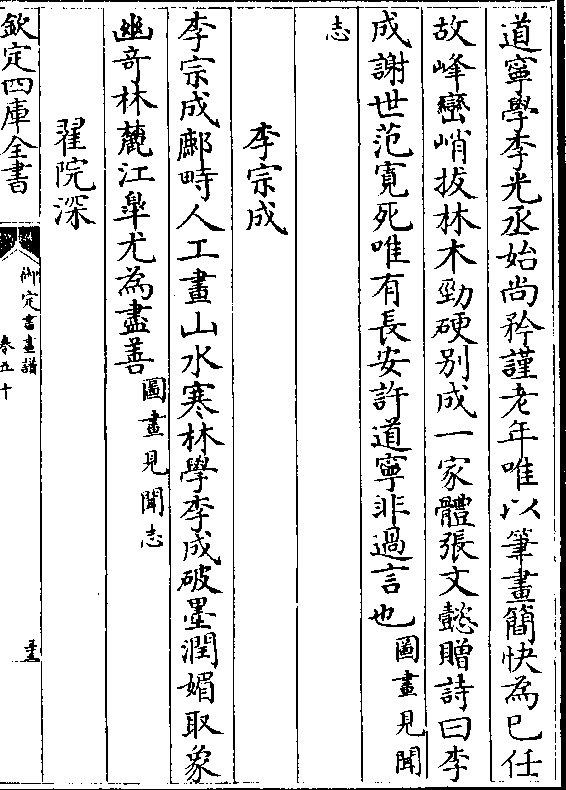 道寧學李光丞始尚矜謹老年唯以筆畫簡快為巳任
故峰巒峭拔林木勁硬别成一家體張文懿贈詩曰李
成謝世范寛死唯有長安許道寧非過言也圖畫見聞
志
李宗成
李宗成鄜畤人工畫山水寒林學李成破墨潤媚取象
幽竒林麓江臯尤為盡善圖畫見聞志
翟院深
欽定四庫全書
御定書畫譜
卷五十